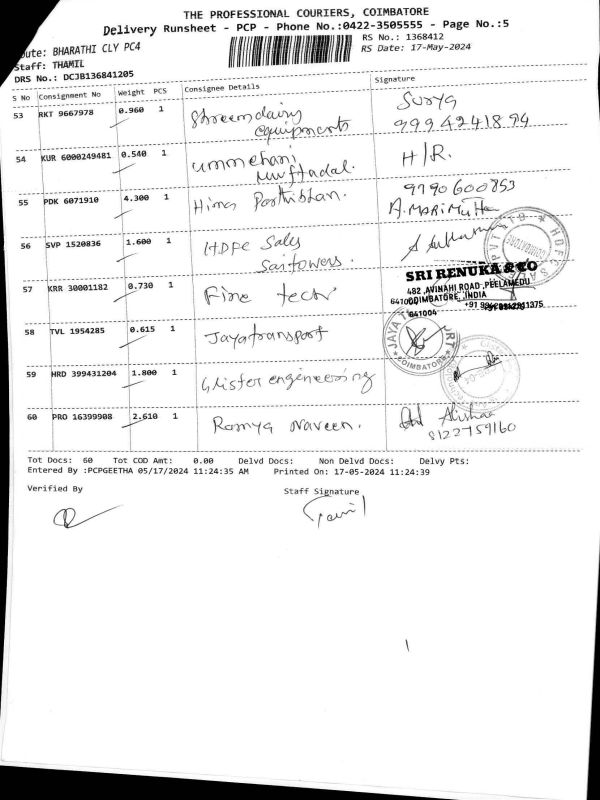 THE PROFESSIONAL COURIERS, COIMBATORE
Delivery Runsheet - PCP - Phone No.:0422-3505555 - Page No.:5
oute: BHARATHI CLY PC4
RS No.: 1368412
Staff: THAMIL
RS Date: 17-May-2024
DRS No.: DCJB136841205
S No Consignment No Weight PCS Consignee Details Signature
53 RKT 9667978 0.960 1 Shreemdairy Surya
equipments 9994241894
54 KUR 6000249481 0.540 1 ummehani H/R.
Muftadal.
55 PDK 6071910 4.300 1 Hima Parthiban. 9790600853
A.MARIMUTHU
56 SVP 1520836 1.600 1 HDPE Sales
Saitowers.
SRI RENUKA & CO
57 KRR 30001182 0.730 1 Fine tech 482 ,AVINAHI ROAD ,PEELAMEDU
COIMBATORE, INDIA
641004
58 TVL 1954285 0.615 1 Jayatransport JAYA
COIMBATORE
59 HRD 399431204 1.800 1 Glister engineering
60 PRO 16399908 2.610 1 Ramya Naveen. Alishaa
8122759160
Tot Docs: 60 Tot COD Amt: 0.00 Delvd Docs: Non Delvd Docs: Delvy Pts:
Entered By :PCPGEETHA 05/17/2024 11:24:35 AM Printed On: 17-05-2024 11:24:39
Verified By Staff Signature
Tamil